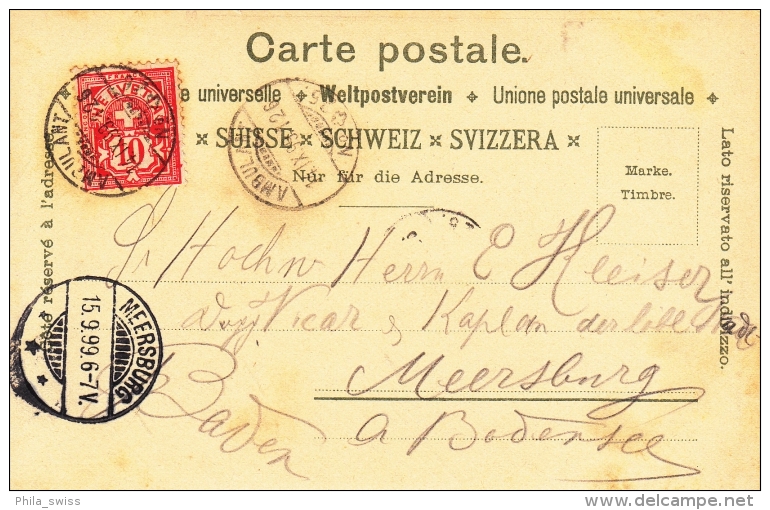 Carte postale.
e universelle ✦ Weltpostverein ✦ Unione postale universale ✦
× SUISSE × SCHWEIZ × SVIZZERA ×
Nur für die Adresse.
Marke.
Timbre.
réservé à l'adresse
Lato riservato all' indirizzo.
HELVETIA
10
AMBULANT
AMBULANT
MEERSBURG
15.9.99.6-7V.
Sr Hochw Herrn E Heiser
Vicar & Kaplan der
Meersburg
a Bodensee
Baden
Phila_swiss
delcampe.net